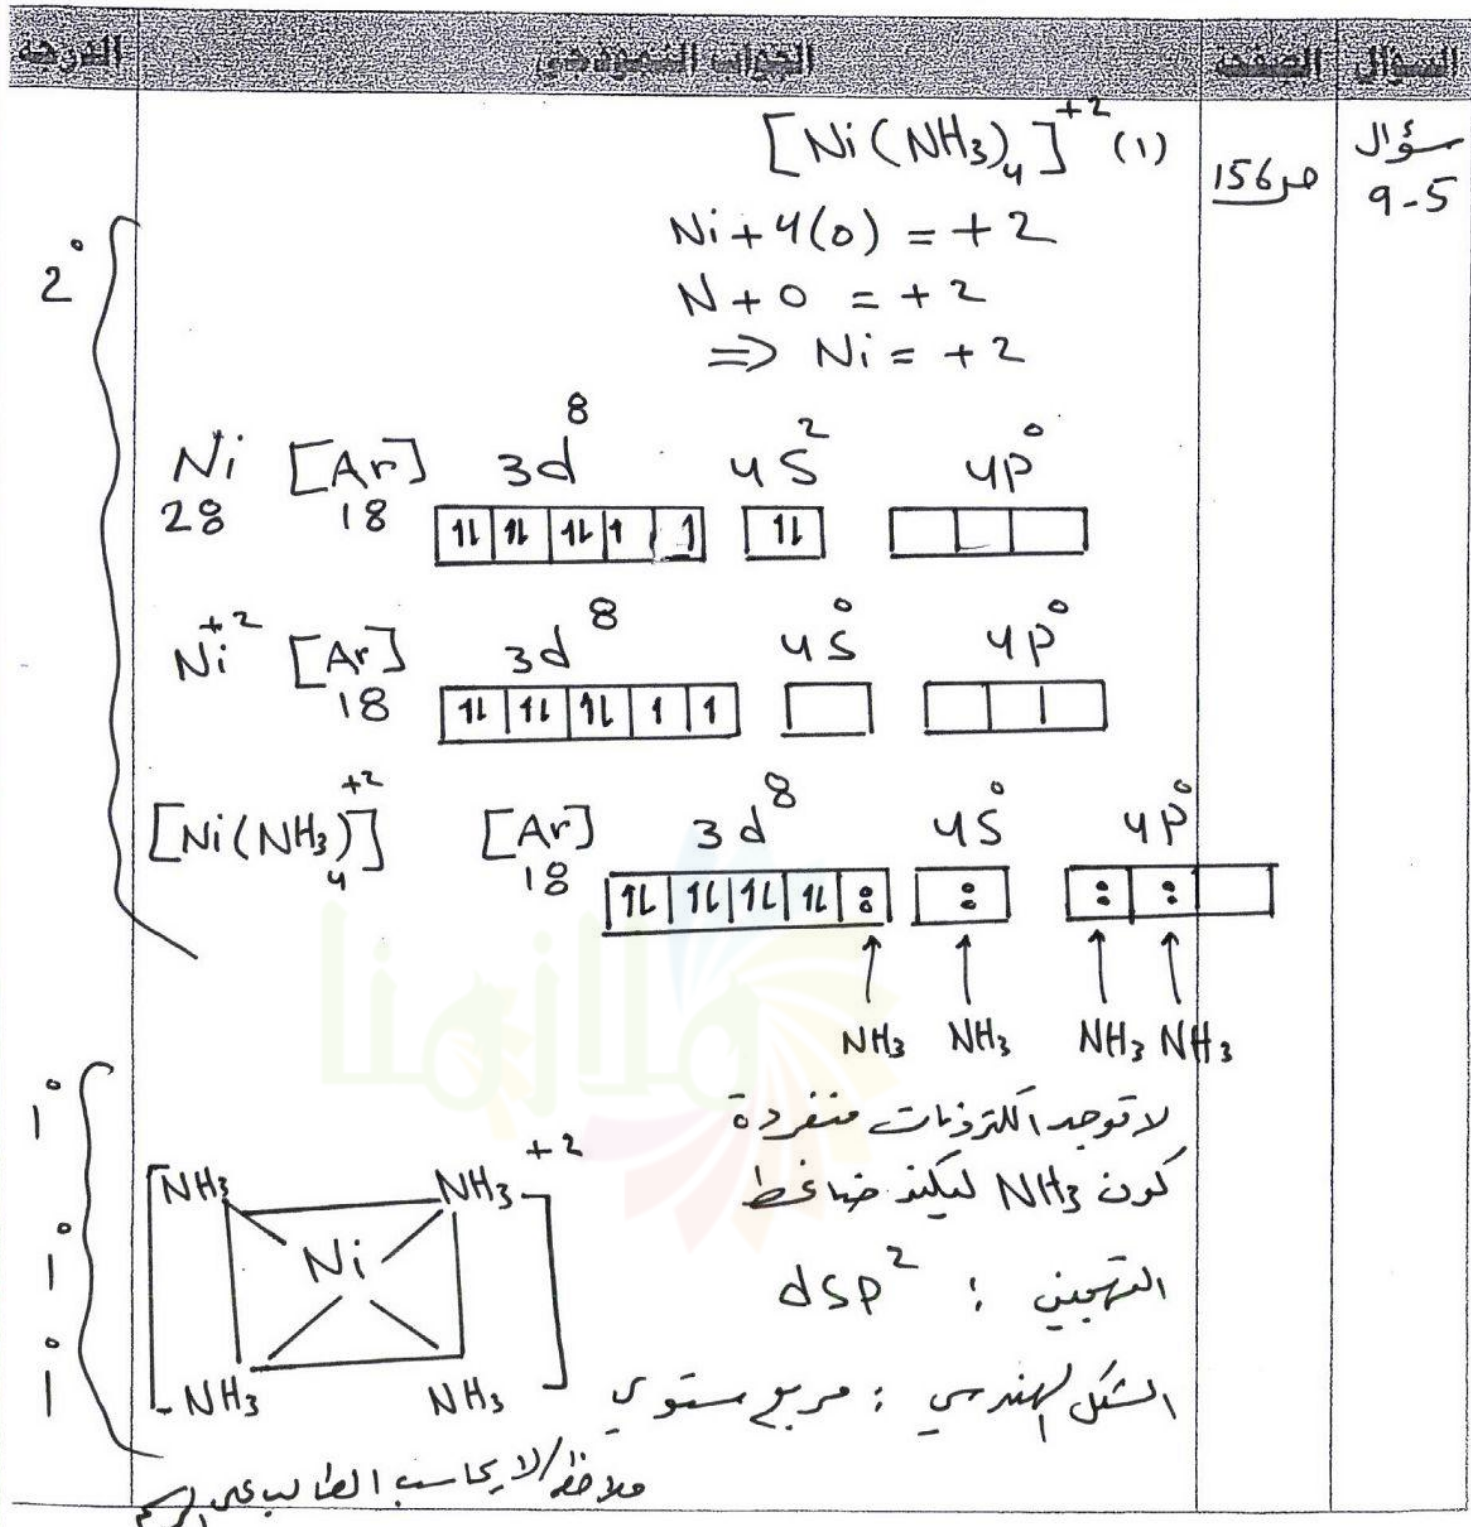 السؤال الصفحة الجواب النموذجي الدرجة
سؤال
9-5
ص156
[Ni(NH₃)₄]⁺² (1)
Ni + 4(0) = +2
N + 0 = +2
⇒ Ni = +2
2°
Ni [Ar] 3d⁸ 4S² 4p⁰
28 18
1L 1L 1L 1 1 1L
Ni⁺² [Ar] 3d⁸ 4S⁰ 4p⁰
18
1L 1L 1L 1 1
[Ni(NH₃)₄]⁺² [Ar] 3d⁸ 4S⁰ 4p⁰
18
1L 1L 1L 1L : : : :
↑ ↑ ↑ ↑
NH₃ NH₃ NH₃ NH₃
ملازمنا
لا توجد الكترونات منفردة
كون NH₃ ليكند ضاغط
التهجين : dsp²
الشكل الهندسي : مربع مستوي
1°
1°
1°
[NH₃ NH₃]⁺²
Ni
NH₃ NH₃
ملاحظة/ لا يحاسب الطالب على الرسم